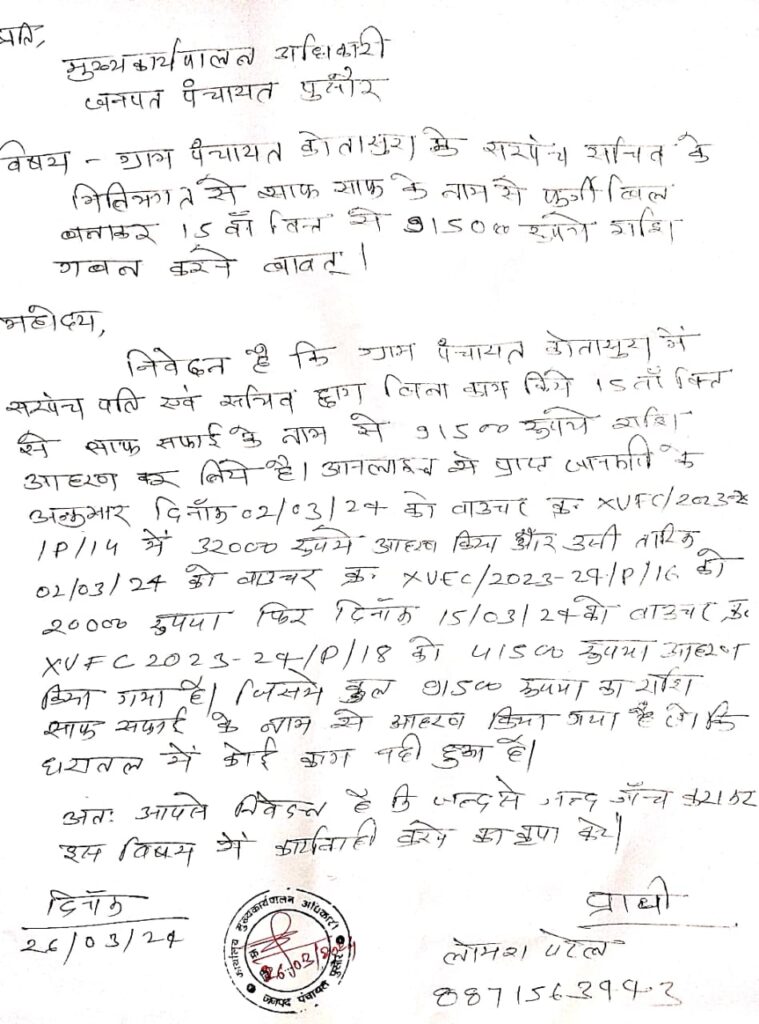 प्रति,
मुख्यकार्यपालन अधिकारी
जनपत पंचायत पुसौर
विषय - ग्राम पंचायत कोतासुरा के सरपंच सचिव के
मिलिभगत से साफ साफ के नाम से फर्जी बिल
बनाकर 15 वाँ वित्त से 91500 रूपये राशि
गबन करने बावत्।
महोदय,
निवेदन है कि ग्राम पंचायत कोतासुरा में
सरपंच पति एवं सचिव द्वारा बिना काम किये 15 वाँ वित्त
से साफ सफाई के नाम से 91500 रूपये राशि
आहरण कर लिये है। आनलाइन से प्राप्त जानकारी के
अनुसार दिनाँक 02/03/24 को वाउचर क्र. XVFC/2023-2
/P/14 में 32000 रूपये आहरण किया और उसी तारिक
02/03/24 को वाउचर क्र. XVFC/2023-24/P/16 को
20000 रूपया फिर दिनाँक 15/03/24 को वाउचर क्र.
XVFC 2023-24/P/18 को 41500 रूपया आहरण
किया गया है। जिसमें कुल 91500 रूपया का राशि
साफ सफाई के नाम से आहरण किया गया है जो कि
धरातल में कोई काम नही हुआ है।
अतः आपसे निवेदन है कि जल्द से जल्द जाँच कराकर
इस विषय में कार्यवाही करने का कृपा करें।
दिनाँक
26/03/24
प्रार्थी
लोमश पटेल
8871563943
कार्यालय मुख्यकार्यपालन अधिकारी
जनपद पंचायत पुसौर
26/03/24